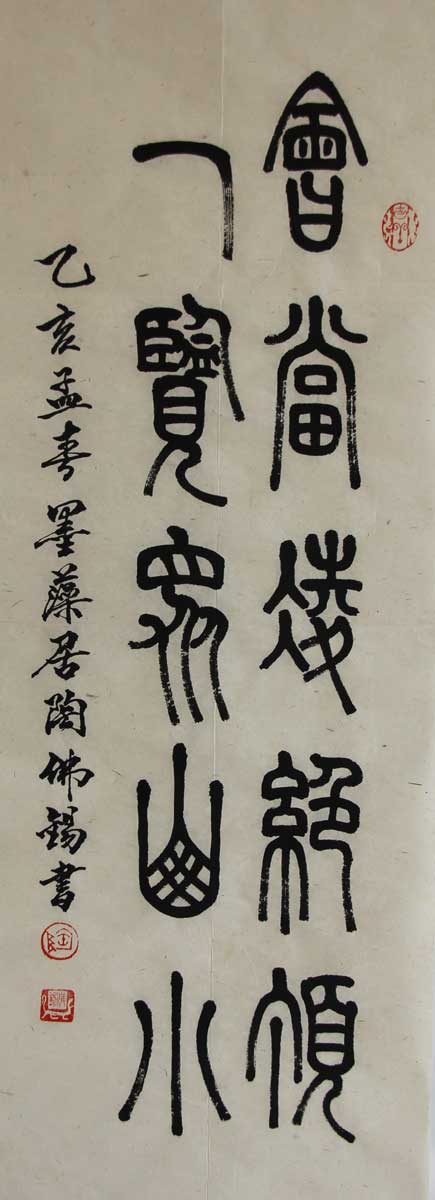 會當凌絕頂
一覽眾山小
乙亥孟春墨藻居陶佛錫書
陶